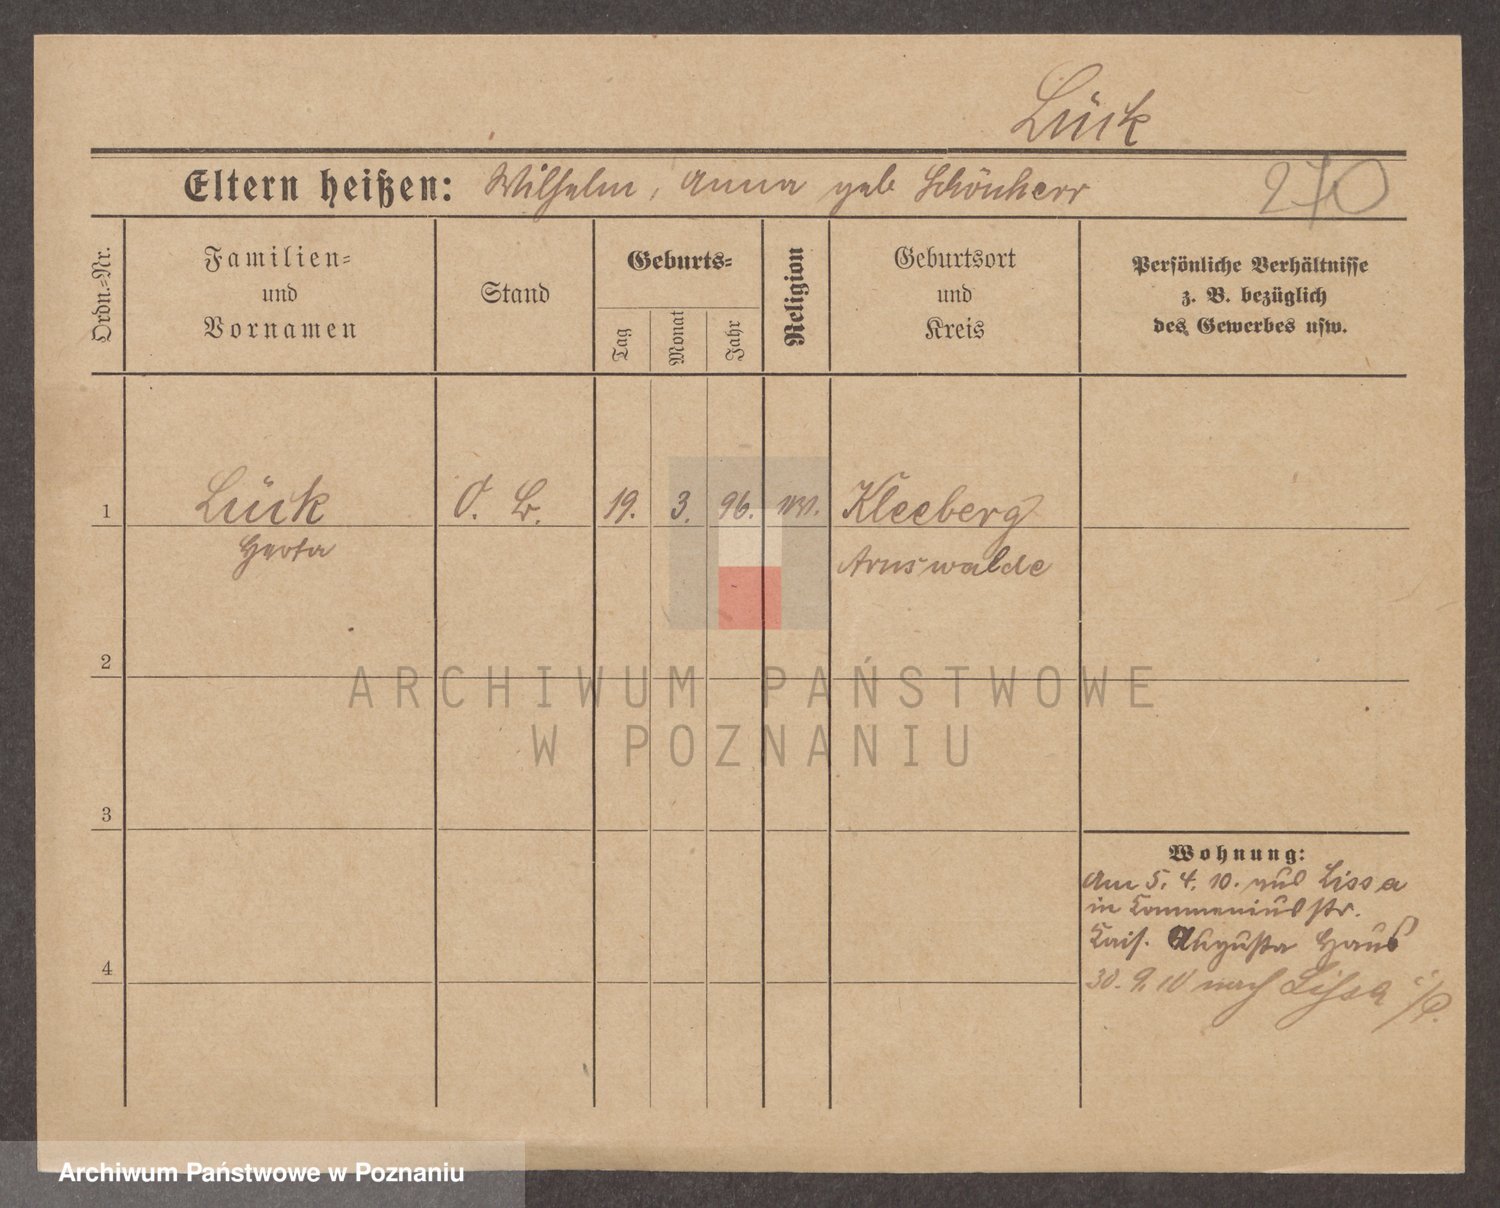 Lück
Eltern heißen: Wilhelm, Anna geb Schönherr
270
Ordn.-Nr.
Familien-
und
Vornamen
Stand
Geburts-
Tag
Monat
Jahr
Religion
Geburtsort
und
Kreis
Persönliche Verhältnisse
z. B. bezüglich
des Gewerbes usw.
1
Lück
Herta
19.
3.
96.
Kleeberg
Arnswalde
2
ARCHIWUM PAŃSTWOWE
W POZNANIU
3
4
Wohnung:
Am 5. 4. 10. aus Lissa
in Commeniusstr.
Kais. Augusta Haus
30. 9. 10 nach Lissa i/P.
Archiwum Państwowe w Poznaniu